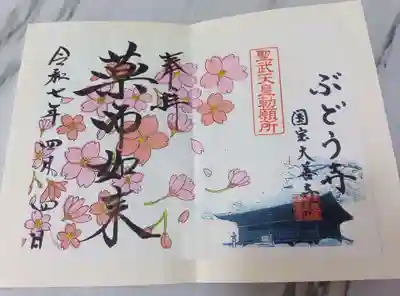 ぶどう寺
国宝大善寺
聖武天皇勅願所
奉拝
薬師如来
令和七年四月四日